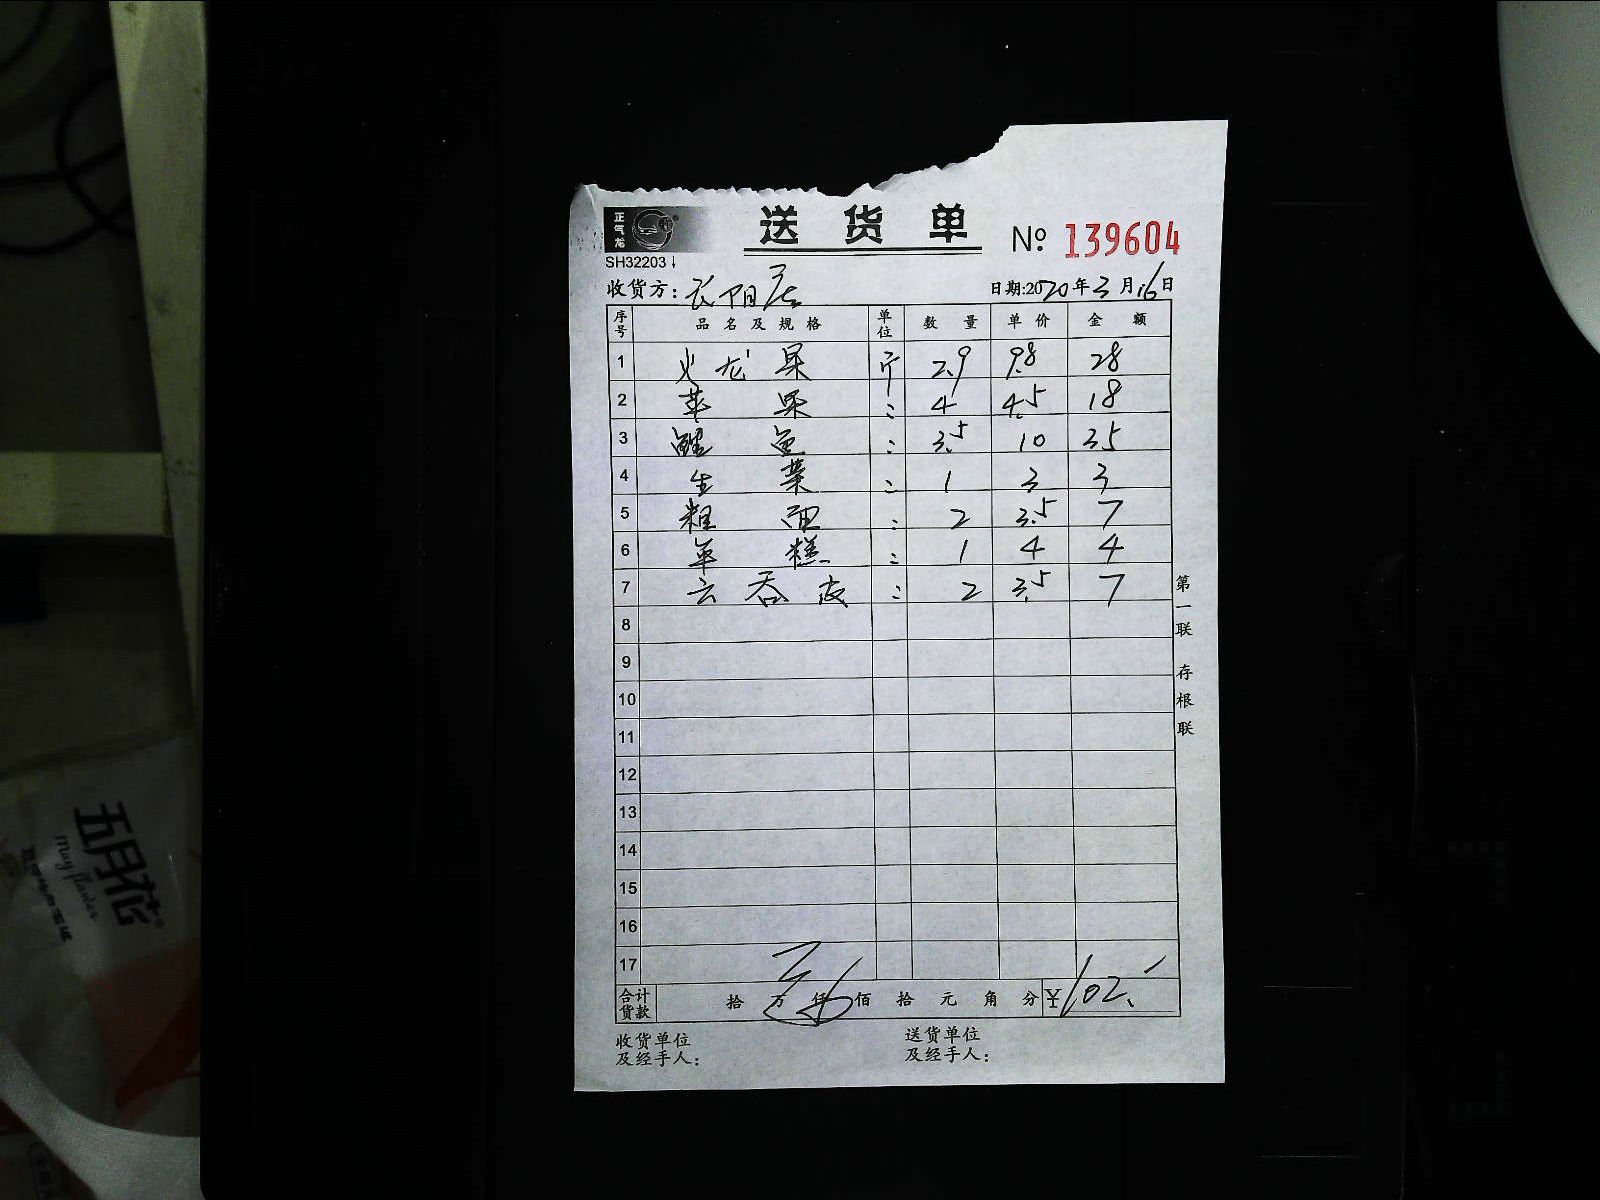 正气龙
送货单
№ 139604
SH32203↓
收货方：长阳店 日期:2020年3月16日
序号 品名及规格 单位 数量 单价 金额
1 火龙果 斤 2.9 9.8 28
2 苹果 : 4 4.5 18
3 鱼 : 3.5 10 35
4 生菜 : 1 3 3
5 粗面 : 2 3.5 7
6 糕 : 1 4 4
7 云吞皮 : 2 3.5 7
8
9
10
11
12
13
14
15
16
17
合计货款 拾 万 仟 佰 拾 元 角 分 ¥102.
收货单位及经手人：
送货单位及经手人：
第一联 存根联
五月花
May flower